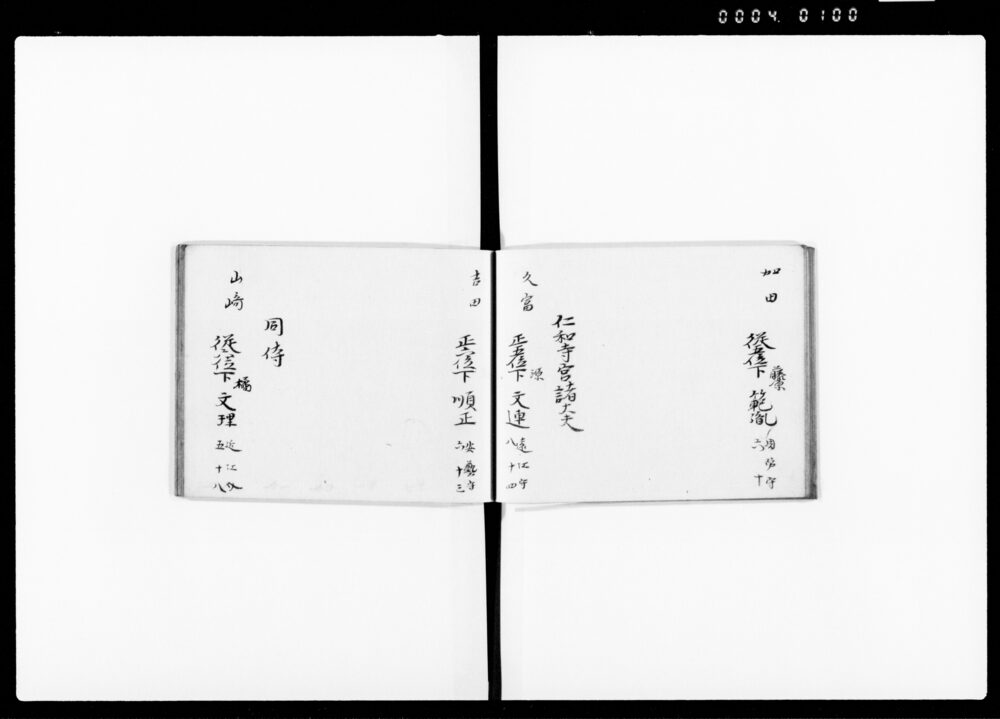 0004 0100
加田
従五位下 藤 範胤 周防守 六十
仁和寺宮諸大夫
久富
正五位下 源 文連 遠江守 八十四
吉田
正六位下 順正 安藝守 六十三
同侍
山崎
従六位下 橘 文理 近江介 五十八